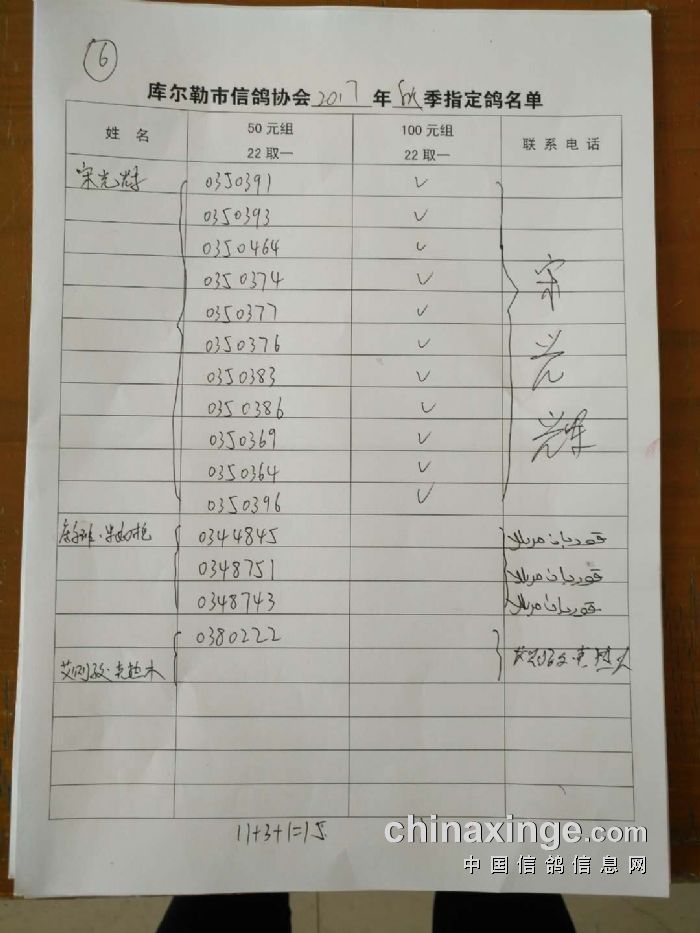 6
库尔勒市信鸽协会 2017 年 秋 季指定鸽名单
姓 名 50元组 22取一 100元组 22取一 联系电话
宋光辉 0350391 ✓
0350393 ✓
0350464 ✓
0350374 ✓
0350377 ✓
0350376 ✓
0350383 ✓
0350386 ✓
0350369 ✓
0350364 ✓
0350396 ✓
宋光辉
0344845
0348751
0348743
0380222
艾则孜·克热木
11+3+1=15
chinaxinge.com
中国信鸽信息网